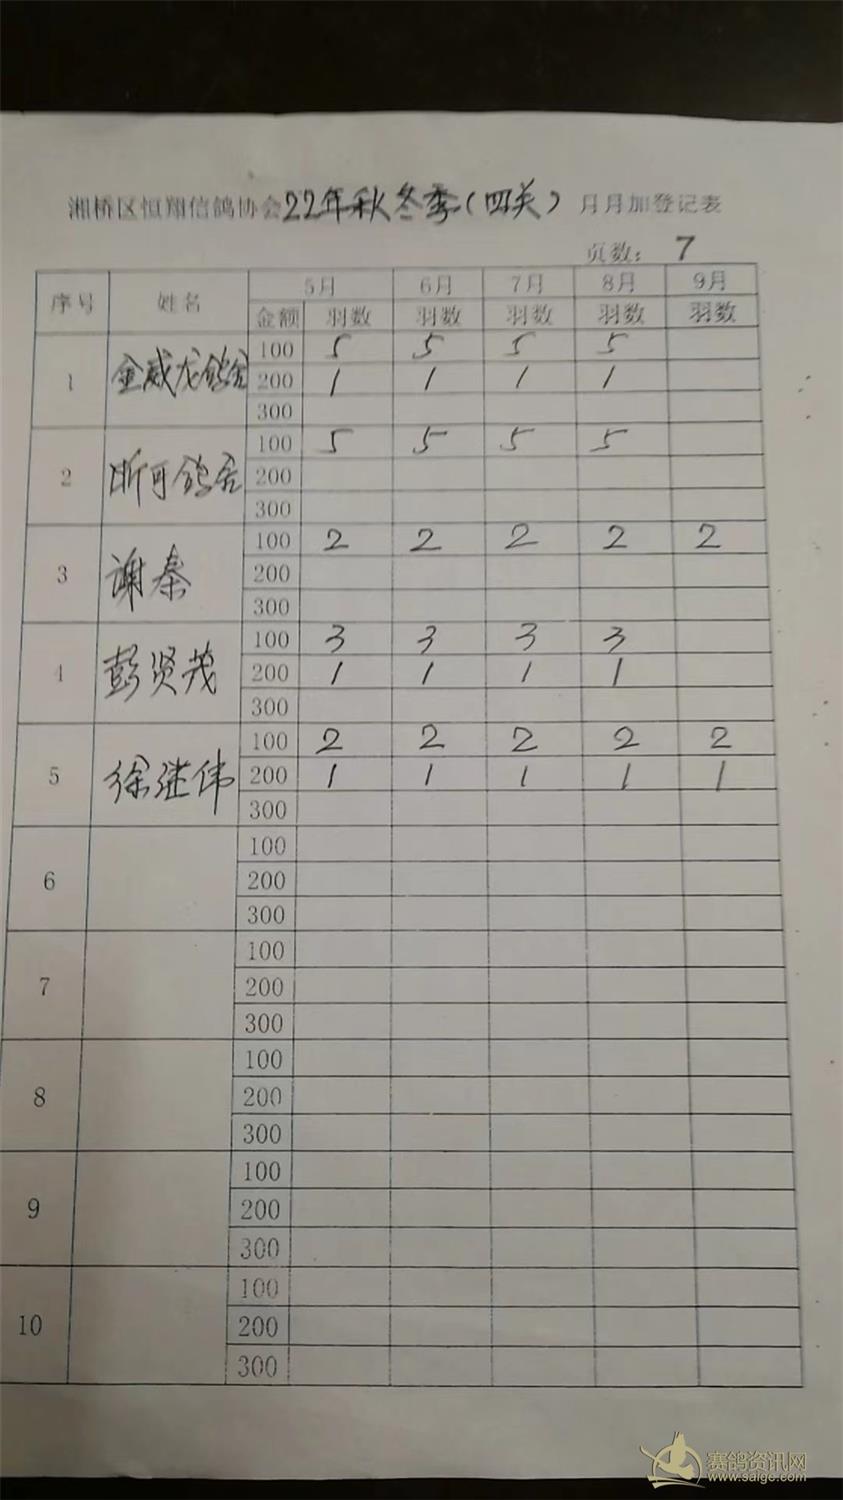 湘桥区恒翔信鸽协会22年秋冬季(四关) 月月加登记表
页数: 7
序号 姓名 5月 6月 7月 8月 9月
金额 羽数 羽数 羽数 羽数 羽数
1 金威龙鸽舍 100 5 5 5 5
200 1 1 1 1
300
2 昕可鸽舍 100 5 5 5 5
200
300
3 谢秦 100 2 2 2 2 2
200
300
4 彭贤茂 100 3 3 3 3
200 1 1 1 1
300
5 徐继伟 100 2 2 2 2 2
200 1 1 1 1 1
300
6 100
200
300
7 100
200
300
8 100
200
300
9 100
200
300
10 100
200
300
赛鸽资讯网
www.saige.com